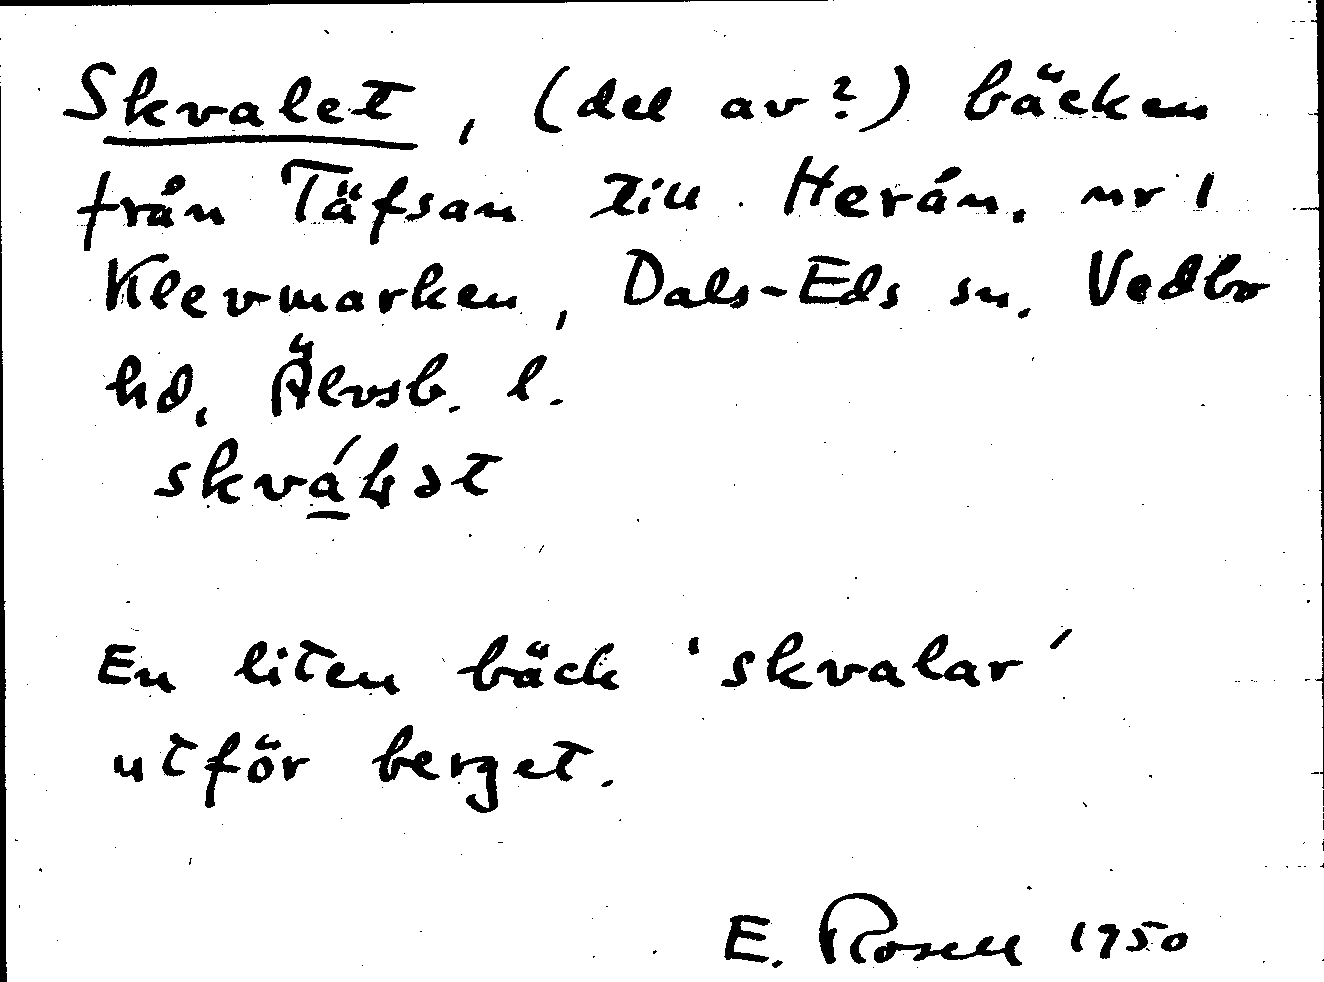 Skvalet, (del av?) bäcken
från Täfsan till Herån. nr 1
Klevmarken, Dals-Eds sn. Vedbo
hd. Älvsb. l.
En liten bäck 'skvalar'
utför berget.
E. Rosell 1950